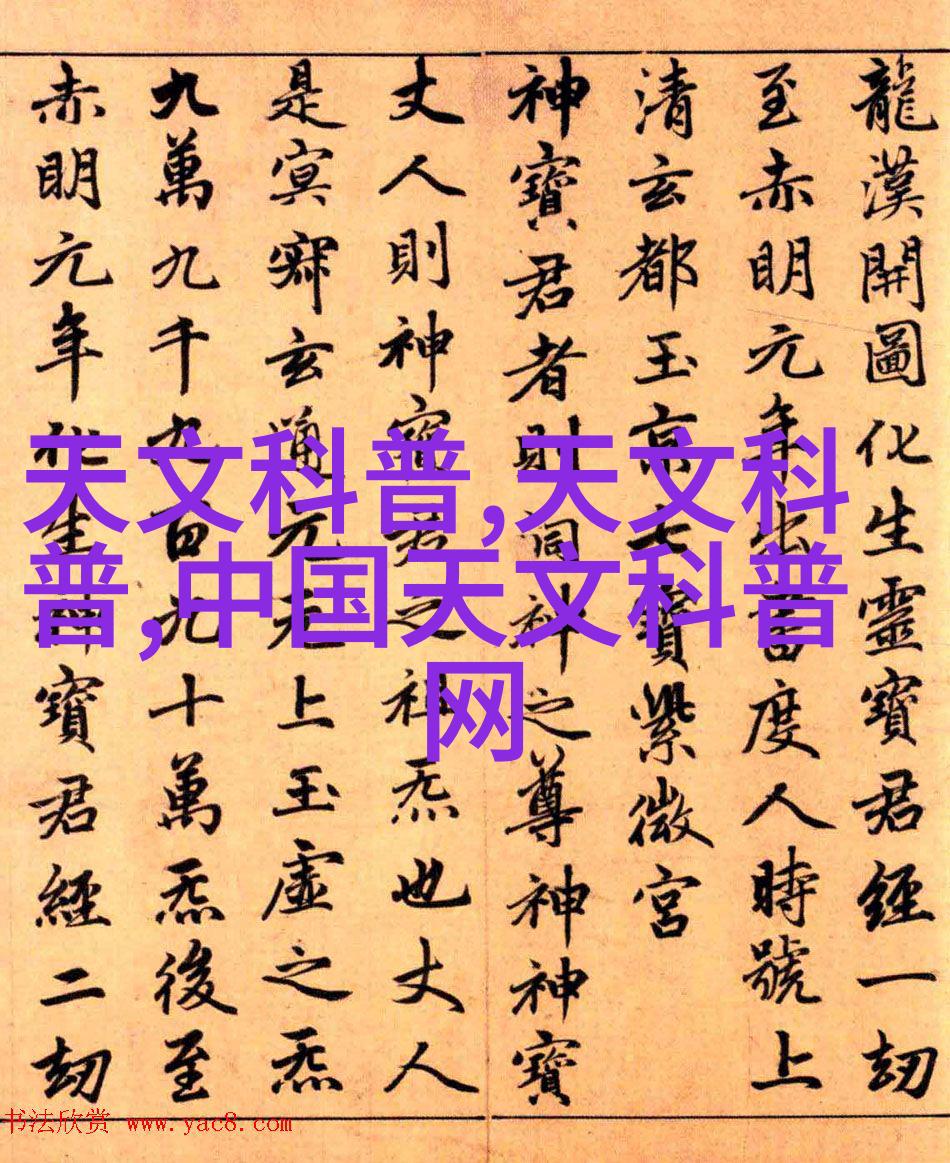 龍漢開圖化生靈寶君經一刧
至赤明元年出書度人時號上
清玄都玉京七寶紫微宮
神寶君者則洞神之尊神神寶
丈人則神寶君之祖炁也丈人
是㝠寂玄通元无上玉虛之炁
九萬九千九百九十萬炁後至
赤明元年化生神寶君經二刧
天文科普,天文科
普,中国天文科普
网
书法欣赏 www.yac8.com